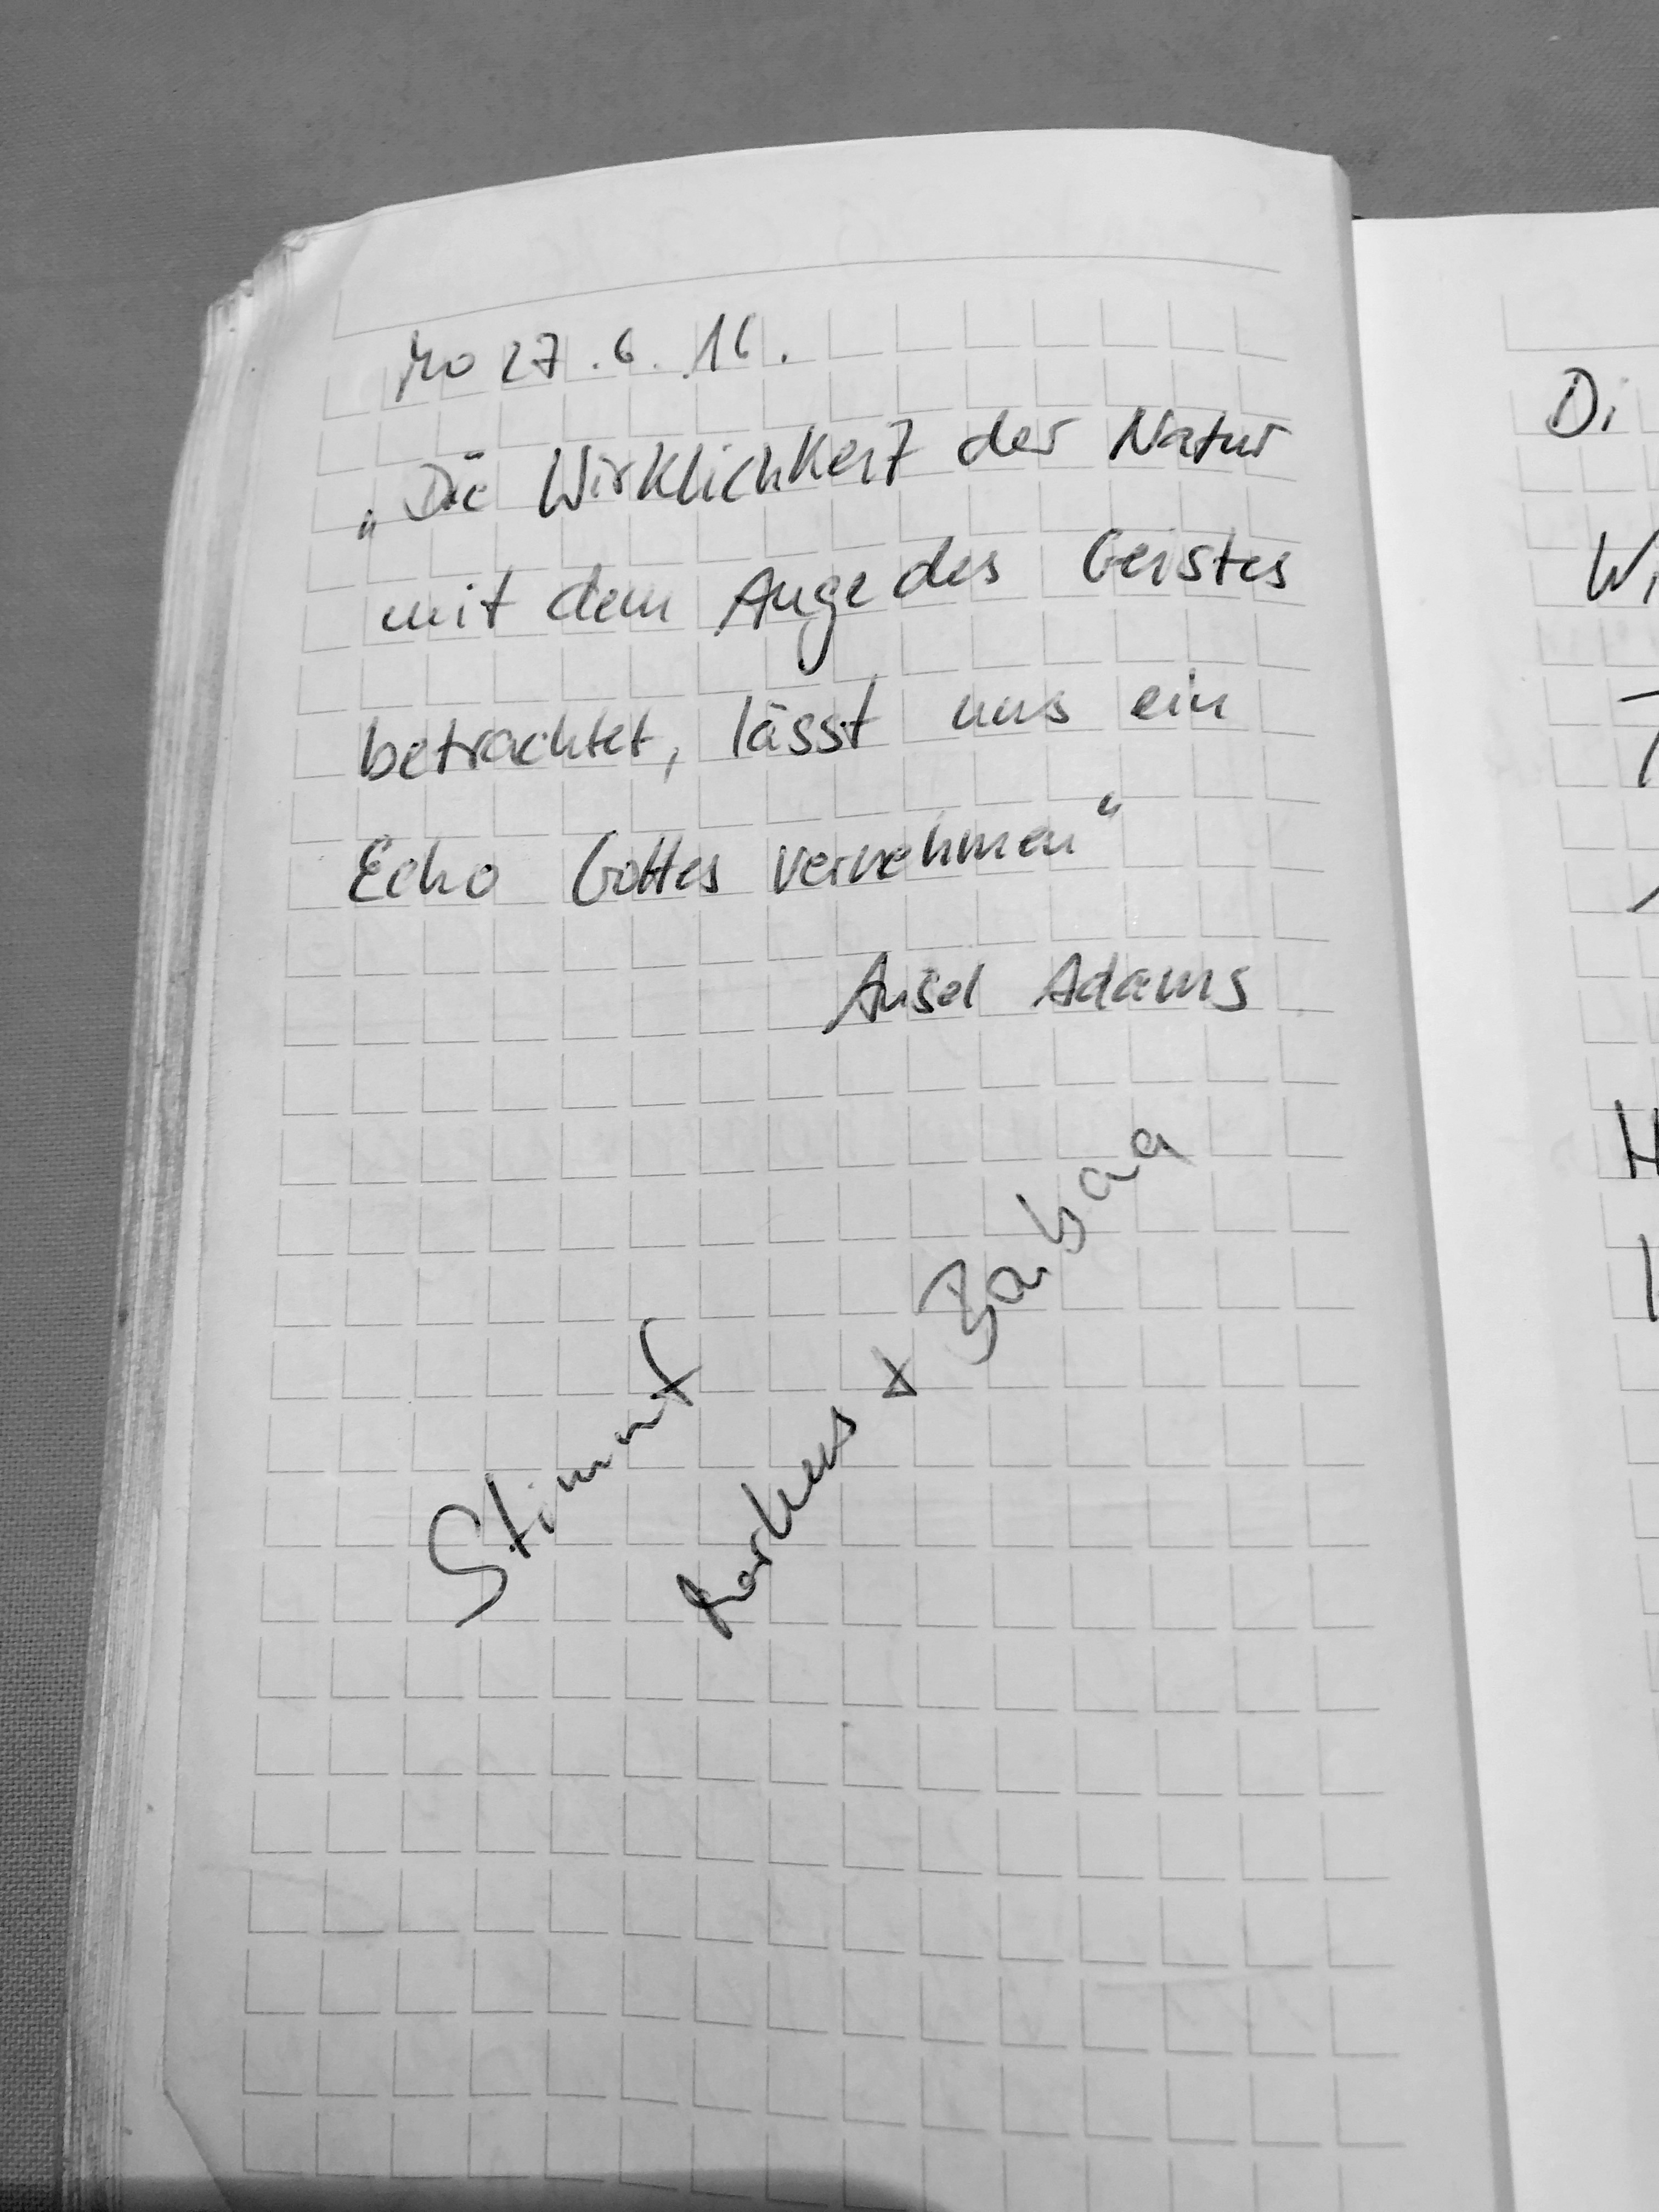 Mo 27.6.16.
„Die Wirklichkeit der Natur
mit dem Auge des Geistes
betrachtet, lässt uns ein
Echo Gottes vernehmen“
Ansel Adams
Stimmt
Markus +
Di